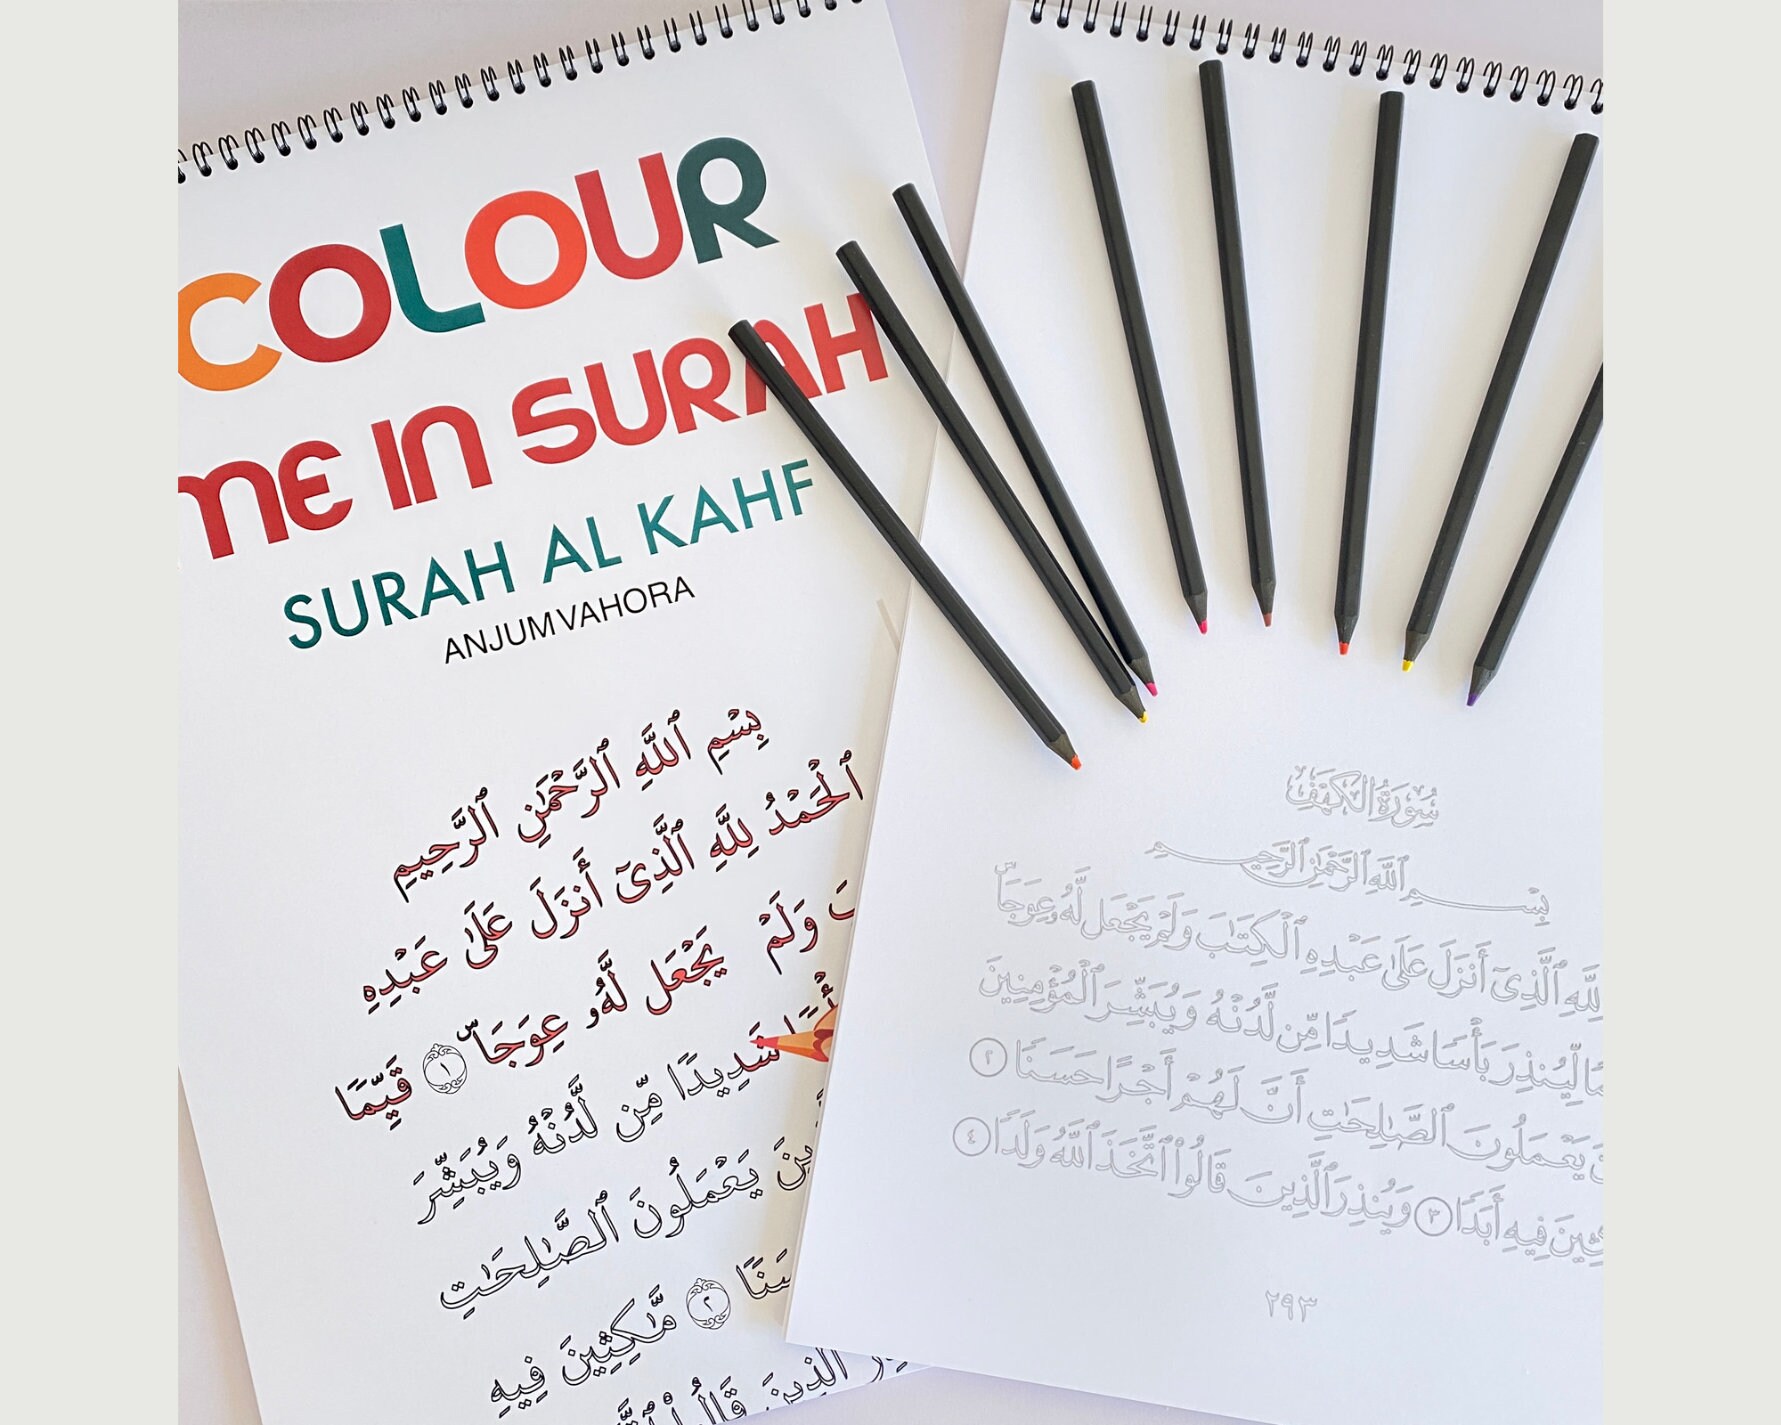 COLOUR
ME IN SURAH
SURAH AL KAHF
ANJUM VAHORA
بِسْمِ ٱللَّهِ ٱلرَّحْمَٰنِ ٱلرَّحِيمِ
ٱلْحَمْدُ لِلَّهِ ٱلَّذِىٓ أَنزَلَ عَلَىٰ عَبْدِهِ
وَلَمْ يَجْعَل لَّهُۥ عِوَجَاۜ ١ قَيِّمًا
شَدِيدًا مِّن لَّدُنْهُ وَيُبَشِّرَ
يَعْمَلُونَ ٱلصَّٰلِحَٰتِ
٢ مَّٰكِثِينَ فِيهِ
ٱلَّذِينَ
سُورَةُ الكَهْفِ
بِسْمِ ٱللَّهِ ٱلرَّحْمَٰنِ ٱلرَّحِيمِ
لِلَّهِ ٱلَّذِىٓ أَنزَلَ عَلَىٰ عَبْدِهِ ٱلْكِتَٰبَ وَلَمْ يَجْعَل لَّهُۥ عِوَجَاۜ
لِّيُنذِرَ بَأْسًا شَدِيدًا مِّن لَّدُنْهُ وَيُبَشِّرَ ٱلْمُؤْمِنِينَ
يَعْمَلُونَ ٱلصَّٰلِحَٰتِ أَنَّ لَهُمْ أَجْرًا حَسَنًا ٢
فِيهِ أَبَدًا ٣ وَيُنذِرَ ٱلَّذِينَ قَالُوا۟ ٱتَّخَذَ ٱللَّهُ وَلَدًا ٤
٢٩٣